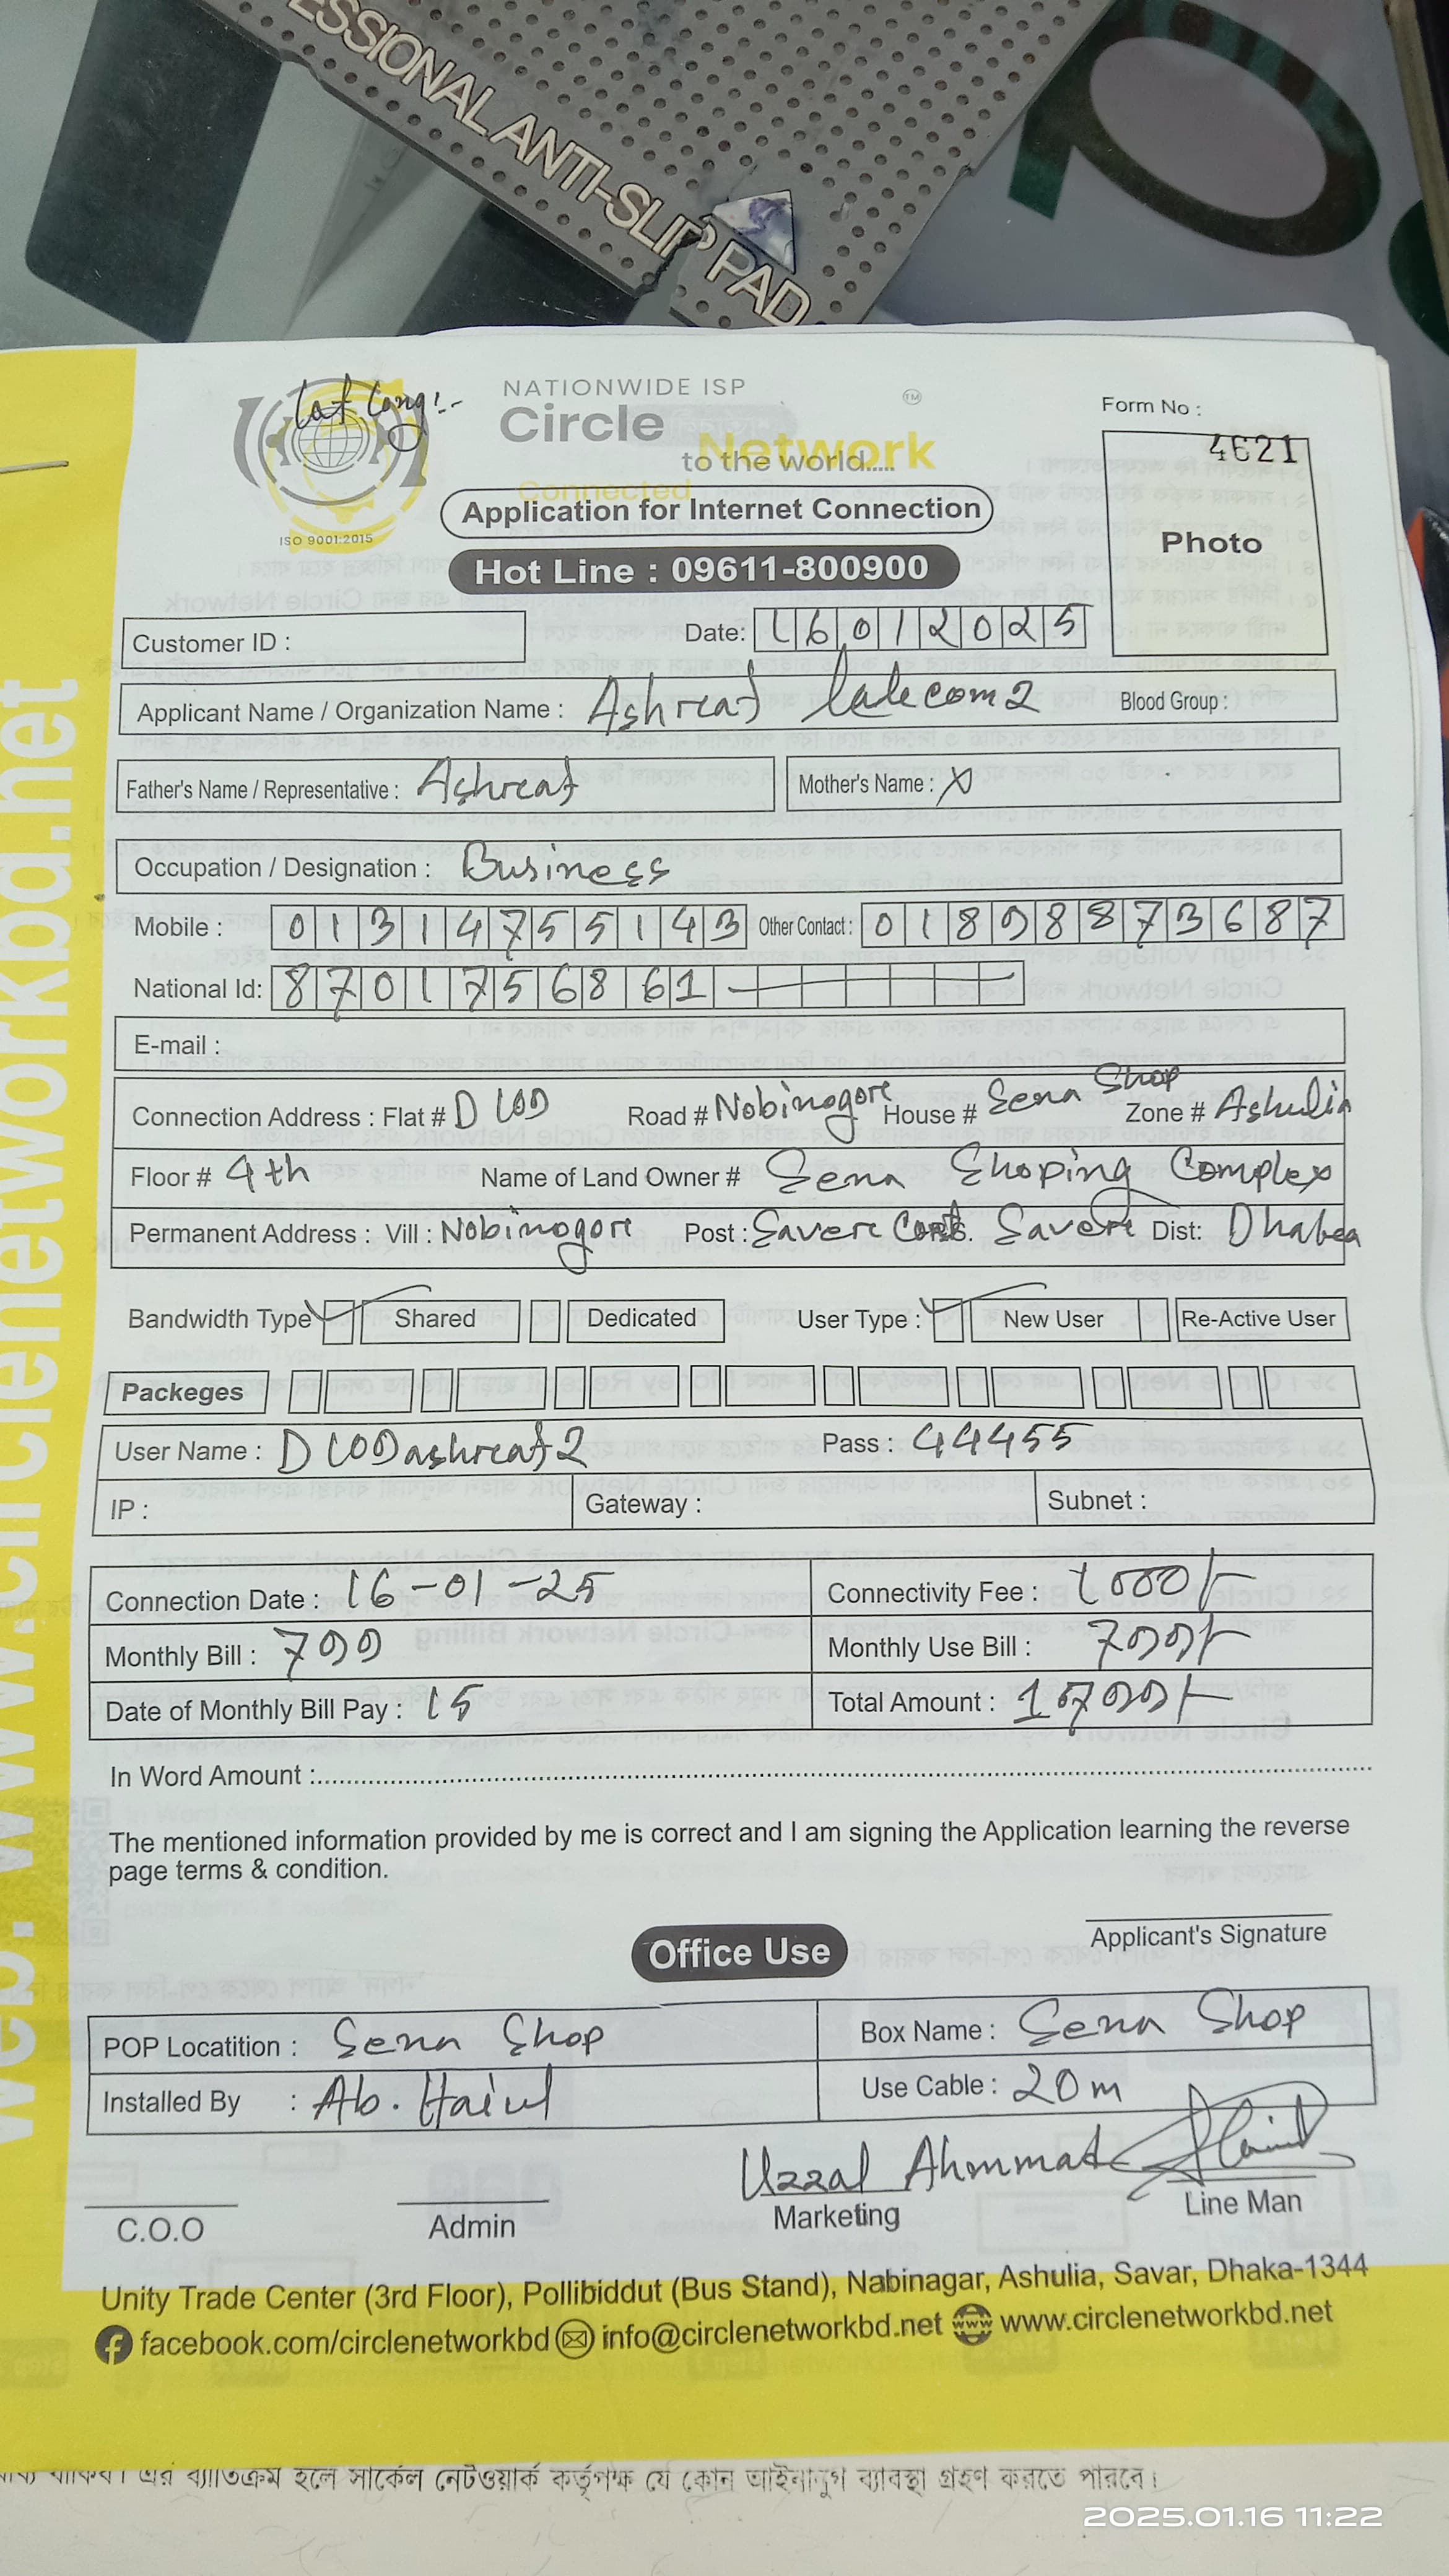 PROFESSIONAL ANTI-SLIP PAD
Lat Long:-
NATIONWIDE ISP
Circle Network ™
Connected to the world.....
ISO 9001:2015
Form No :
4621
Photo
Application for Internet Connection
Hot Line : 09611-800900
Customer ID :
Date: 16012025
Applicant Name / Organization Name : Ashraf telecom 2 Blood Group :
Father's Name / Representative : Ashraf Mother's Name : X
Occupation / Designation : Business
Mobile : 01314755143 Other Contact : 01898873687
National Id: 8701756861
E-mail :
Connection Address : Flat # Road # Nobinogore House # Sena Shop Zone # Ashulia
Floor # 4th Name of Land Owner # Sena Shoping Complex
Permanent Address : Vill : Nobinogore Post : Savere Savere Dist: Dhaka
Bandwidth Type Shared Dedicated User Type : New User Re-Active User
Packeges
User Name : Pass : 44455
IP : Gateway : Subnet :
Connection Date : 16-01-25 Connectivity Fee : 1000/-
Monthly Bill : 700 Monthly Use Bill : 700/-
Date of Monthly Bill Pay : 15 Total Amount :
In Word Amount :
The mentioned information provided by me is correct and I am signing the Application learning the reverse
page terms & condition.
Applicant's Signature
Office Use
POP Locatition : Sena Shop Box Name : Sena Shop
Installed By : Ab. Use Cable : 20m
Uzzal Ahmmad
C.O.O Admin Marketing Line Man
Unity Trade Center (3rd Floor), Pollibiddut (Bus Stand), Nabinagar, Ashulia, Savar, Dhaka-1344
facebook.com/circlenetworkbd info@circlenetworkbd.net www www.circlenetworkbd.net
web: www.circlenetworkbd.net
এর ব্যাতিক্রম হলে সার্কেল নেটওয়ার্ক কর্তৃপক্ষ যে কোন আইনানুগ ব্যাবস্থা গ্রহণ করতে পারবে।
2025.01.16 11:22